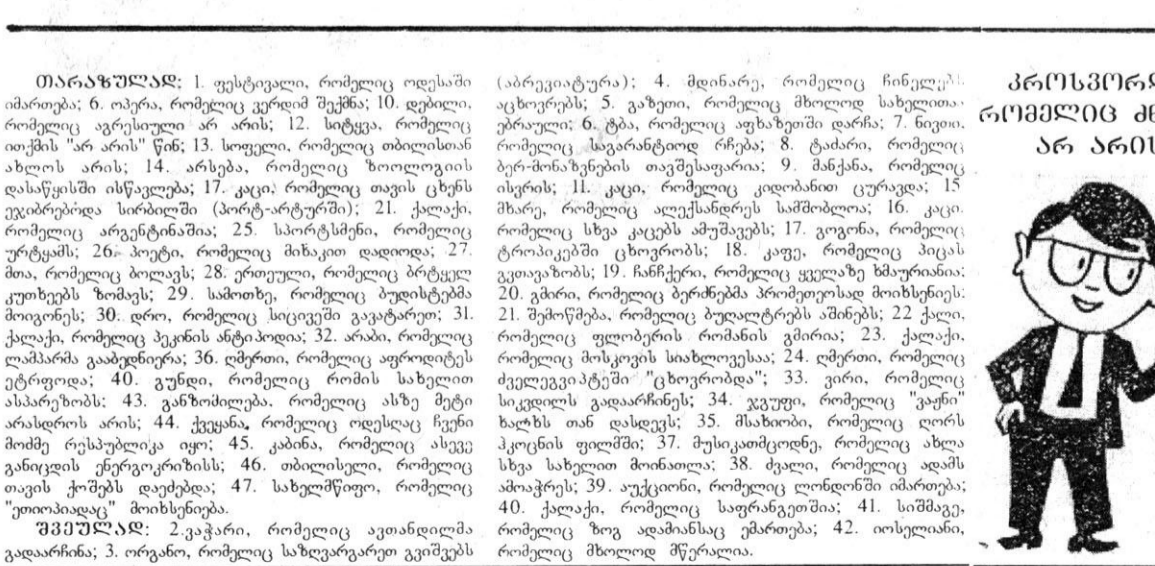 თარაზულად: 1. ფესტივალი, რომელიც ოდესაში
იმართება; 6. ოპერა, რომელიც ვერდიმ შექმნა; 10. დებილი,
რომელიც აგრესიული არ არის; 12. სიტყვა, რომელიც
ითქმის "არ არის" წინ; 13. სოფელი, რომელიც თბილისთან
ახლოს არის; 14. არსება, რომელიც ზოოლოგიის
დასაწყისში ისწავლება; 17. კაცი, რომელიც თავის ცხენს
ეჯიბრებოდა სირბილში (პორტ-არტურში); 21. ქალაქი,
რომელიც არგენტინაშია; 25. სპორტსმენი, რომელიც
ურტყამს; 26. პოეტი, რომელიც მიხაკით დადიოდა; 27.
მთა, რომელიც ბოლავს; 28. ერთეული, რომელიც ბრტყელ
კუთხეებს ზომავს; 29. სამოთხე, რომელიც ბუდისტებმა
მოიგონეს; 30. დრო, რომელიც სიცივეში გავატარეთ; 31.
ქალაქი, რომელიც პეკინის ანტიპოდია; 32. არაბი, რომელიც
ლამპარმა გააბედნიერა; 36. ღმერთი, რომელიც აფროდიტეს
ეტრფოდა; 40. გუნდი, რომელიც რომის სახელით
ასპარეზობს; 43. განზომილება, რომელიც ასზე მეტი
არასდროს არის; 44. ქვეყანა, რომელიც ოდესღაც ჩვენი
მოძმე რესპუბლიკა იყო; 45. კაბინა, რომელიც ასევე
განიცდის ენერგოკრიზისს; 46. თბილისელი, რომელიც
თავის ქოშებს დაეძებდა; 47. სახელმწიფო, რომელიც
"ეთიოპიადაც" მოიხსენიება.
შვეულად: 2.ვაჭარი, რომელიც ავთანდილმა
გადაარჩინა; 3. ორგანო, რომელიც საზღვარგარეთ გვიშვებს
(აბრევიატურა); 4. მდინარე, რომელიც ჩინელებს
აცხოვრებს; 5. გაზეთი, რომელიც მხოლოდ სახელითაა
ებრაული; 6. ტბა, რომელიც აფხაზეთში დარჩა; 7. ნივთი,
რომელიც საგარანტიოდ რჩება; 8. ტაძარი, რომელიც
ბერ-მონაზვნების თავშესაფარია; 9. მანქანა, რომელიც
ისვრის; 11. კაცი, რომელიც კიდობანით ცურავდა; 15
მხარე, რომელიც ალექსანდრეს სამშობლოა; 16. კაცი.
რომელიც სხვა კაცებს ამუშავებს; 17. გოგონა, რომელიც
ტროპიკებში ცხოვრობს; 18. კაფე, რომელიც პიცას
გვთავაზობს; 19. ჩანჩქერი, რომელიც ყველაზე ხმაურიანია;
20. გმირი, რომელიც ბერძნებმა პრომეთეოსად მოიხსენიეს;
21. შემოწმება, რომელიც ბუღალტრებს აშინებს; 22 ქალი,
რომელიც ფლობერის რომანის გმირია; 23. ქალაქი,
რომელიც მოსკოვის სიახლოვესაა; 24. ღმერთი, რომელიც
ძველეგვიპტეში "ცხოვრობდა"; 33. ვირი, რომელიც
სიკვდილს გადაარჩინეს; 34. ჯგუფი, რომელიც "ვაჟნი"
ხალხს თან დასდევს; 35. მსახიობი, რომელიც ღორს
ჰკოცნის ფილმში; 37. მუსიკათმცოდნე, რომელიც ახლა
სხვა სახელით მოინათლა; 38. ძვალი, რომელიც ადამს
ამოაჭრეს; 39. აუქციონი, რომელიც ლონდონში იმართება;
40. ქალაქი, რომელიც საფრანგეთშია; 41. სიშმაგე,
რომელიც ზოგ ადამიანსაც ემართება; 42. იოსელიანი,
რომელიც მხოლოდ მწერალია.
რომელიც
არ არის